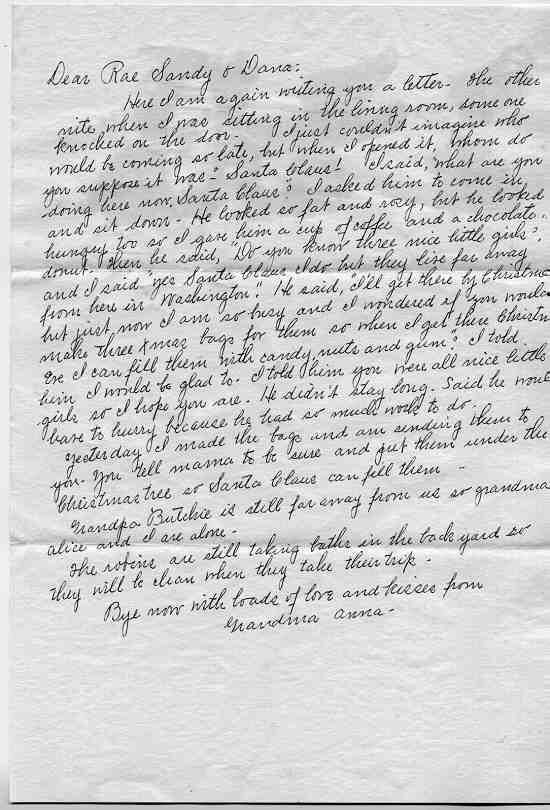 Dear Rae Sandy & Dana:
Here I am again writing you a letter. The other
nite, when I was sitting in the living room, some one
knocked on the door. I just couldn't imagine who
would be coming so late, but when I opened it, whom do
you suppose it was? Santa Claus! I said, "what are you
doing here now, Santa Claus"? I asked him to come in
and sit down. He looked so fat and rosy, but he looked
hungry too so I gave him a cup of coffee and a chocolate
donut. Then he said, "Do you know three nice little girls",
and I said "yes Santa Claus I do but they live far away
from here in Washington". He said, "I'll get there by Christmas
but just now I am so busy and I wondered if you would
make three Xmas bags for them so when I get there Christm
Eve I can fill them with candy, nuts and gum? I told
him I would be glad to. I told him you were all nice little
girls so I hope you are. He didn't stay long. Said he woul
have to hurry because he had so much work to do.
Yesterday I made the bags and am sending them to
you. You tell mama to be sure and put them under the
Christmas tree so Santa Claus can fill them -
Grandpa Butchie is still far away from us so grandma
alice and I are alone.
The robins are still taking baths in the back yard so
they will be clean when they take their trip.
Bye now with loads of love and kisses from
Grandma Anna-